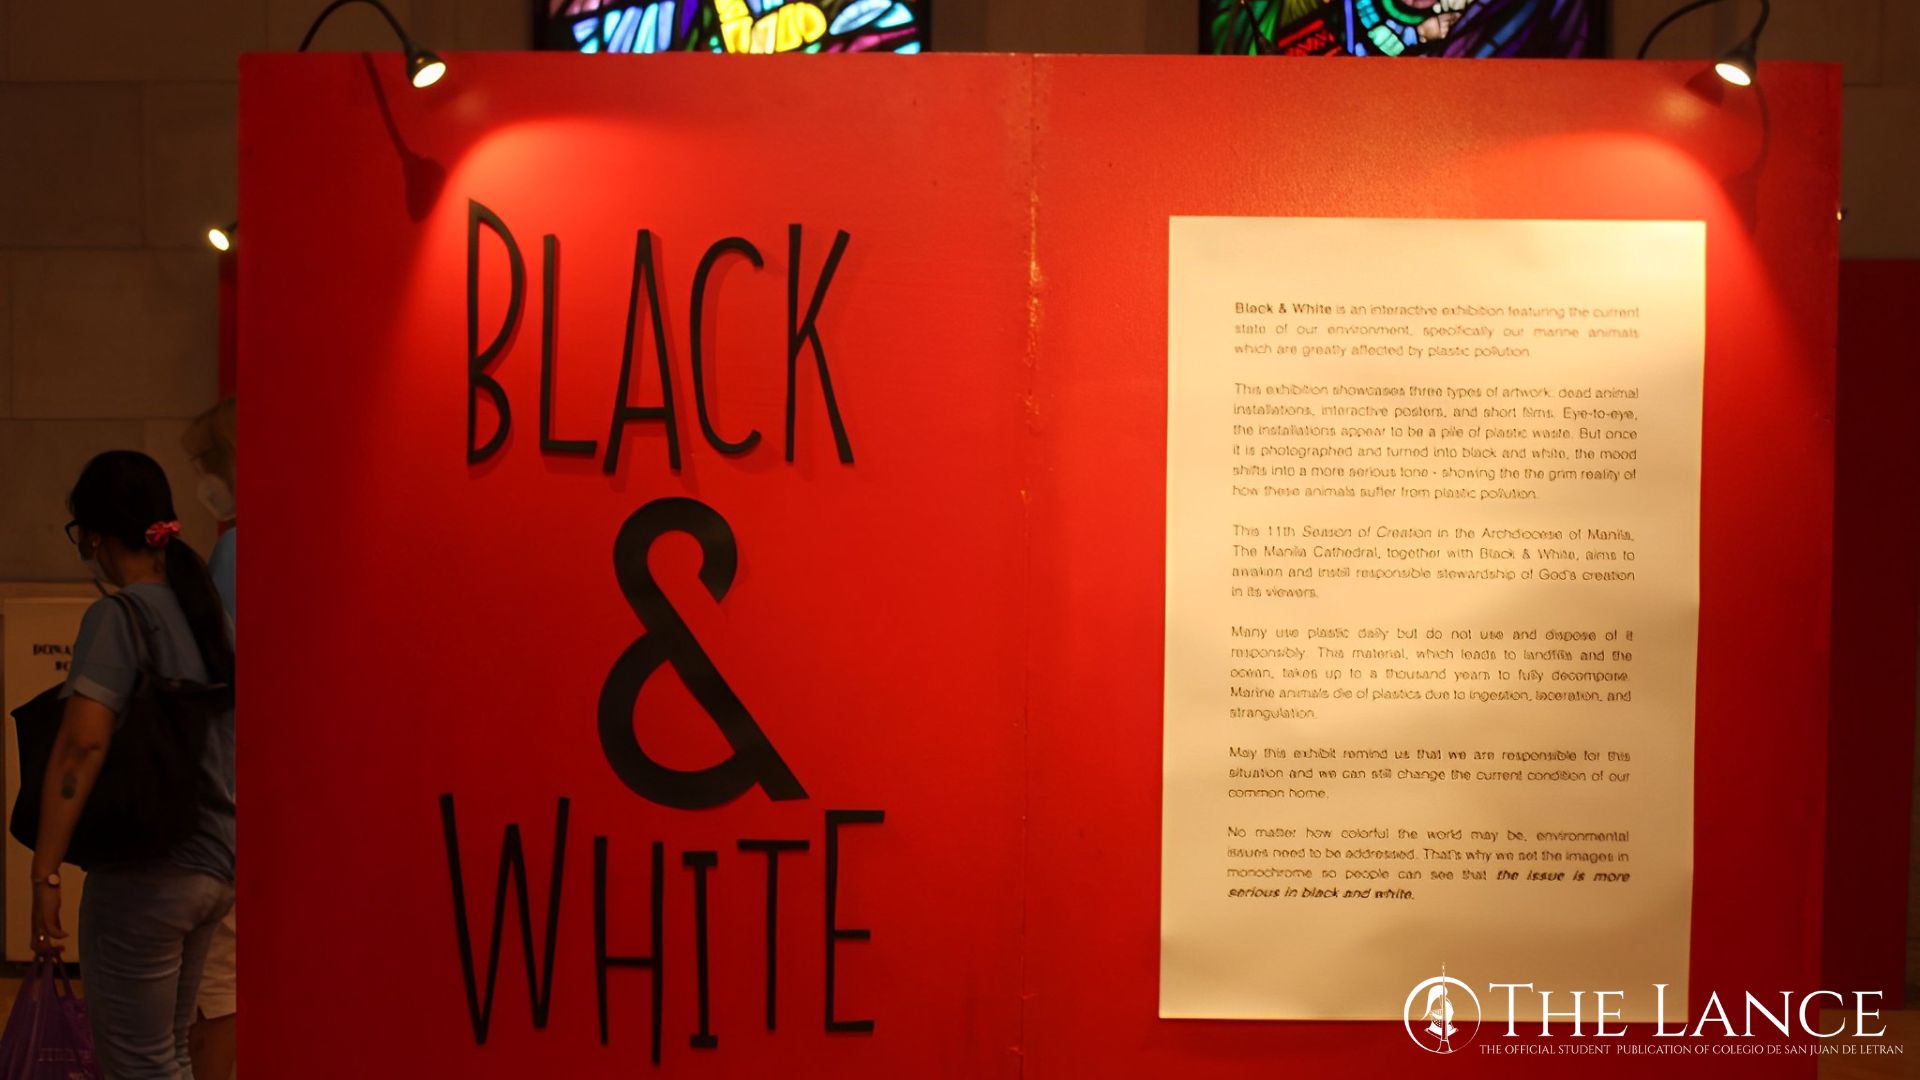 BLACK
&
WHITE
Black & White is an interactive exhibition featuring the current
state of our environment, specifically our marine animals
which are greatly affected by plastic pollution.
This exhibition showcases three types of artwork: dead animal
installations, interactive posters, and short films. Eye-to-eye,
the installations appear to be a pile of plastic waste. But once
it is photographed and turned into black and white, the mood
shifts into a more serious tone - showing the the grim reality of
how these animals suffer from plastic pollution.
This 11th Season of Creation in the Archdiocese of Manila,
The Manila Cathedral, together with Black & White, aims to
awaken and instill responsible stewardship of God's creation
in its viewers.
Many use plastic daily but do not use and dispose of it
responsibly. This material, which leads to landfills and the
ocean, takes up to a thousand years to fully decompose.
Marine animals die of plastics due to ingestion, laceration, and
strangulation.
May this exhibit remind us that we are responsible for this
situation and we can still change the current condition of our
common home.
No matter how colorful the world may be, environmental
issues need to be addressed. That's why we set the images in
monochrome so people can see that the issue is more
serious in black and white.
THE LANCE
THE OFFICIAL STUDENT PUBLICATION OF COLEGIO DE SAN JUAN DE LETRAN